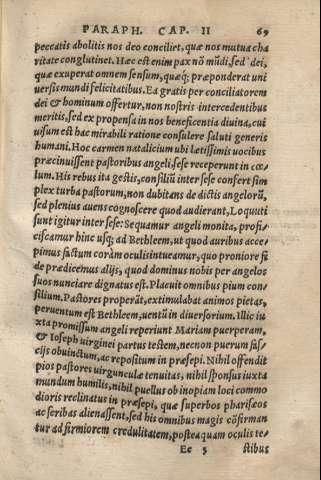 PARAPH. CAP. II 69
peccatis abolitis nos deo conciliet, quæ nos mutua cha
ritate conglutinet. Hæc est enim pax nō mūdi, sed dei,
quæ exuperat omnem sensum, quæq; præponderat uni
uersis mundi felicitatibus. Ea gratis per conciliatorem
dei & hominum offertur, non nostris intercedentibus
meritis, sed ex propensa in nos beneficentia diuina, cui
uisum est hac mirabili ratione consulere saluti generis
humani. Hoc carmen natalicium ubi lætissimis uocibus
præcinuissent pastoribus angeli, sese receperunt in cœ-
lum. His rebus ita gestis, consiliū inter sese confert sim
plex turba pastorum, non dubitans de dictis angelorū,
sed plenius auens cognoscere quod audierant, Loquuti
sunt igitur inter sese: Sequamur angeli monita, profi-
ciscamur hinc usq; ad Bethleem, ut quod auribus acce-
pimus factum corām oculis intueamur, quo proniore fi
de prædicemus alijs, quod dominus nobis per angelos
suos nunciare dignatus est. Placuit omnibus pium con-
silium. Pastores properāt, extimulabat animos pietas,
peruentum est Bethleem, uentū in diuersorium. Illic iu
xta promissum angeli reperiunt Mariam puerperam,
& Ioseph uirginei partus testem, necnon puerum fas-
cijs obuinctum, ac repositum in præsepi. Nihil offendit
pios pastores uirgunculæ tenuitas, nihil sponsus iuxta
mundum humilis, nihil puellus ob inopiam loci commo
dioris reclinatus in præsepi, quæ superbos phariseos
ac scribas alienassent, sed his omnibus magis cōfirman
tur ad firmiorem credulitatem, posteaquam oculis te-
Ee 5 stibus